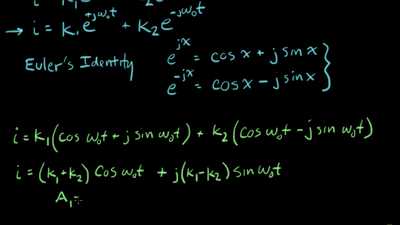 → i = k₁e^{+jω₀t} + k₂e^{-jω₀t}
Euler's Identity
e^{jx} = cos x + j sin x
e^{-jx} = cos x - j sin x
i = k₁(cos ω₀t + j sin ω₀t) + k₂(cos ω₀t - j sin ω₀t)
i = (k₁+k₂) cos ω₀t + j(k₁-k₂) sin ω₀t
A₁=